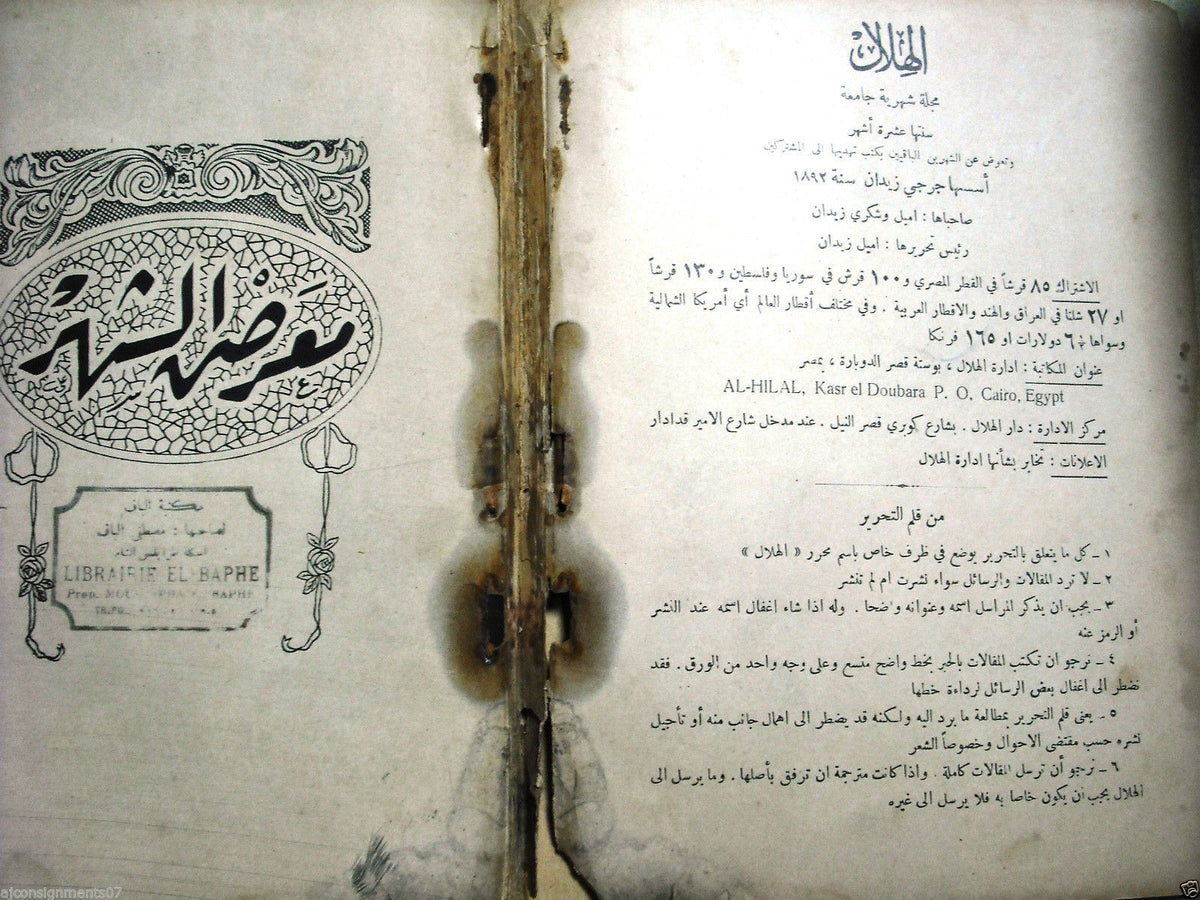 الهلال
مجلة شهرية جامعة
سنتها عشرة أشهر
وتعوض عن الشهرين الباقيين بكتب تهديها الى المشتركين
أسسها جرجي زيدان سنة ١٨٩٢
صاحباها : اميل وشكري زيدان
رئيس تحريرها : اميل زيدان
الاشتراك ٨٥ قرشاً في القطر المصري و ١٠٠ قرش في سوريا وفلسطين و ١٣٠ قرشاً
او ٢٧ شلنا في العراق والهند والاقطار العربية . وفي مختلف أقطار العالم أي أمريكا الشمالية
وسواها ٦ دولارات او ١٦٥ فرنكا
عنوان المكاتبة : ادارة الهلال ، بوستة قصر الدوبارة ، بمصر
AL-HILAL, Kasr el Doubara P. O, Cairo, Egypt
مركز الادارة : دار الهلال . بشارع كوبري قصر النيل . عند مدخل شارع الامير قدادار
الاعلانات : تخابر بشأنها ادارة الهلال
من قلم التحرير
١ ـ كل ما يتعلق بالتحرير يوضع في ظرف خاص باسم محرر « الهلال »
٢ ـ لا ترد المقالات والرسائل سواء نشرت ام لم تنشر
٣ ـ يجب ان يذكر المراسل اسمه وعنوانه واضحا . وله اذا شاء اغفال اسمه عند النشر
أو الرمز عنه
٤ ـ نرجو ان تكتب المقالات بالحبر بخط واضح متسع وعلى وجه واحد من الورق . فقد
نضطر الى اغفال بعض الرسائل لرداءة خطها
٥ ـ يعنى قلم التحرير بمطالعة ما يرد اليه ولكنه قد يضطر الى اهمال جانب منه أو تأجيل
نشره حسب مقتضى الاحوال وخصوصاً الشعر
٦ ـ نرجو أن ترسل المقالات كاملة . واذا كانت مترجمة ان ترفق بأصلها . وما يرسل الى
الهلال يجب أن يكون خاصا به فلا يرسل الى غيره
معرض الشهر
مكتبة الباف
لصاحبها : مصطفى الباف
LIBRAIRIE EL-BAPHE
ajconsignments07